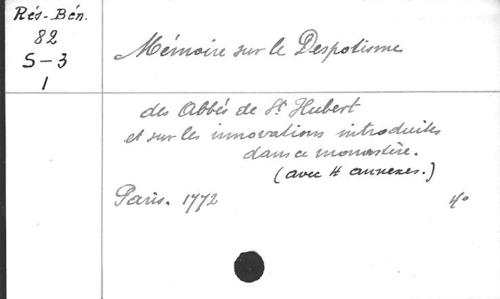 Rés-Bén.
82
S-3
1
Mémoire sur le Despotisme
des Abbés de St Hubert
et sur les innovations introduites
dans ce monastère.
(avec 4 annexes.)
Paris. 1772 4°